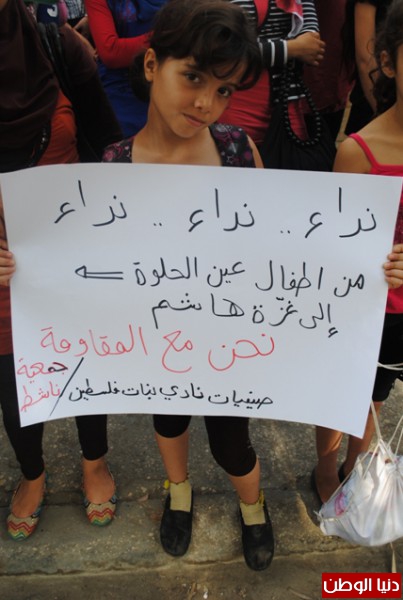 نداء .. نداء .. نداء
من اطفال عين الحلوة
إلى غزّة هاشم
نحن مع المقاومة
صيفيات نادي بنات فلسطين / جمعية ناشط
دنيا الوطن